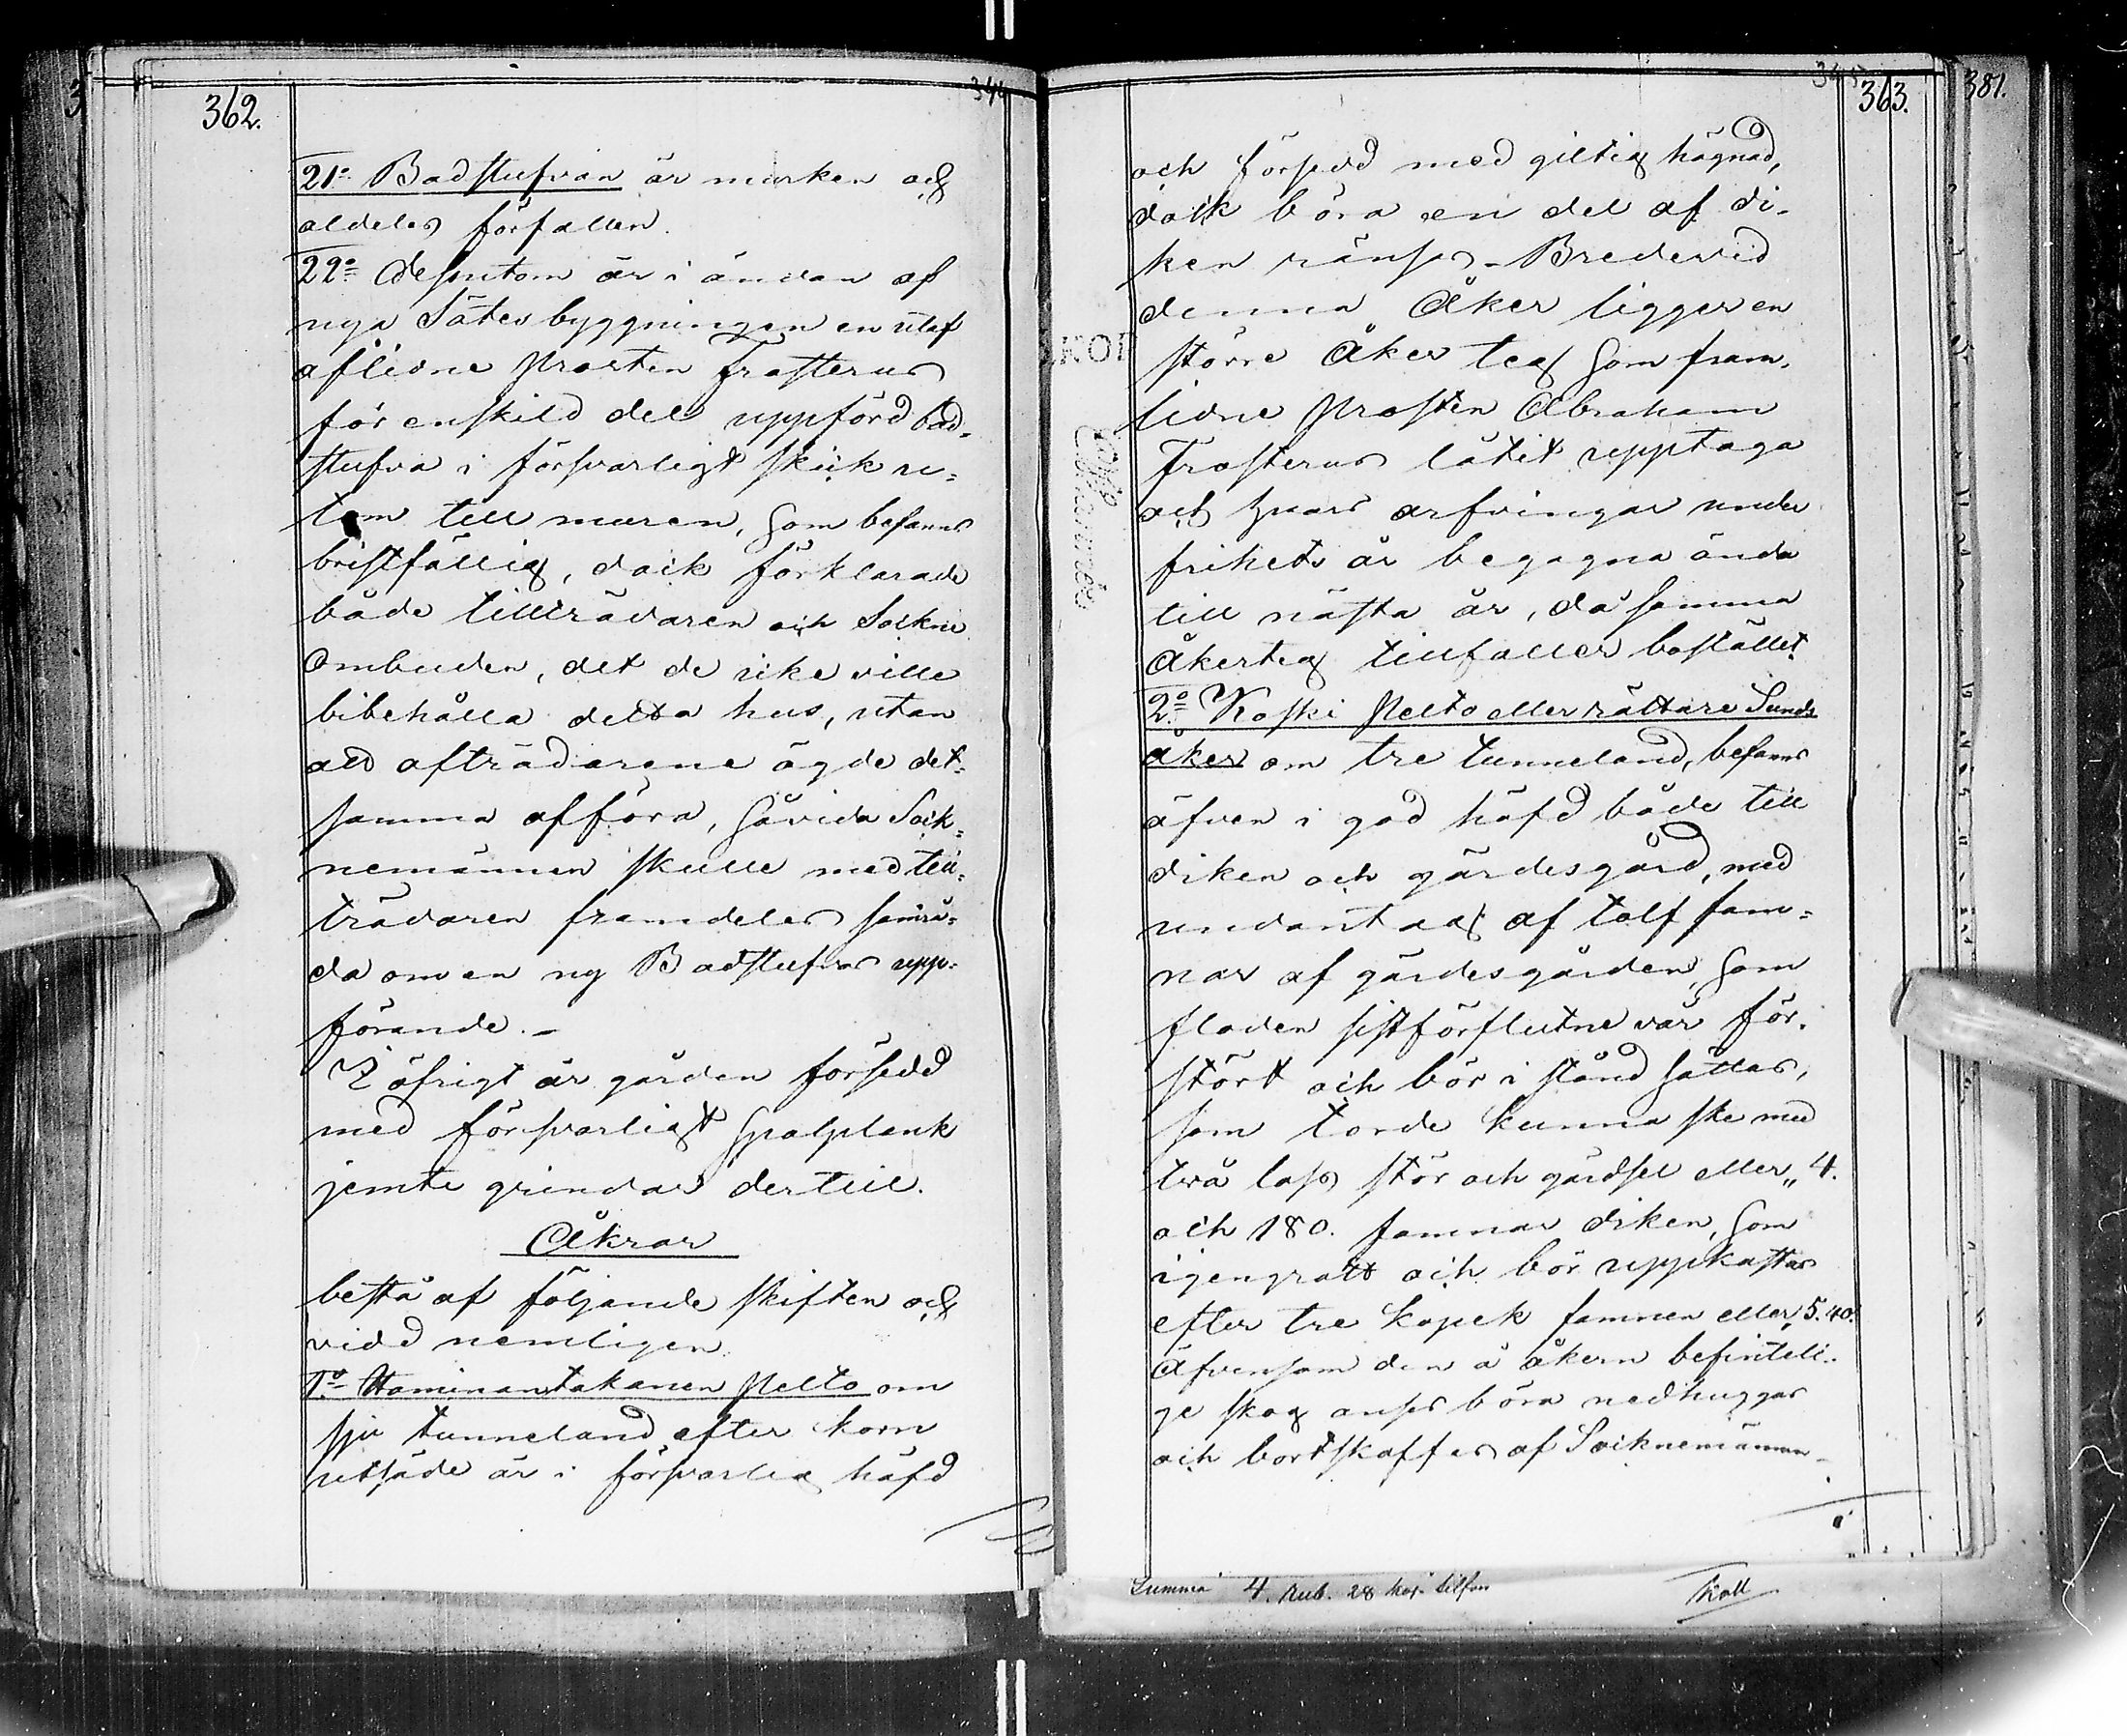 362.
21o Badstufvan är murken och
aldeles förfallen.
22o Dessutom är i ändan af
nya Sätesbyggningen en utaf
aflidne Prosten Frosterus
för enskild del uppförd bad=
stufva i försvarligt skick u=
tom till muren, som befanns
bristfällig, dock förklarade
både tillträdaren och Sockne
Ombuden, det de icke ville
bibehålla detta hus, utan
att afträdarene ägde det=
samma afföra, såvida Sock=
nemännen skulle med till=
trädaren framdeles samrå=
da om en ny Badstufvas upp=
förande.-
I öfrigt är gården försedd
med försvarligt Spolplank
jemte grindar dertill.
Åkrar
bestå af följande skiften och
vidd nemligen
1o Haminantakanen Pelto om
sju tunneland efter korn
utsäde är i försvarlig häfd
363.
381.
och försedd med giltig hägnad,
dock böra en del af di-
ken ränsas - Bredevid
denna Åker ligger en
större Åker teg som fram-
lidne Prosten Abraham
Frosterus låtit upptaga
och hvars arfvingar under
frihets år begagna ända
till nästa år, då samma
Åkerteg tillfaller bostället.
2o Koski Pelto eller rättare Sunds
åker om tre tunneland, befanns
äfven i god häfd både till
diken och gärdesgård, med
undantag af tolf fam=
nar af gärdesgården, som
floden sistförflutne vår för-
stört och bör i stånd sättas,
som torde kunna ske med
två lass stör och gärdsel eller „ 4.
och 180. famnar diken, som
igengrott och bör uppkastas
efter tre kopek famnen eller 5.40.
Äfvensom den å åkern befinteli-
ge skog anses böra nedhuggas
och bortskaffas af Socknemännen.
Summa 4. Rub. 28 kop. silfver